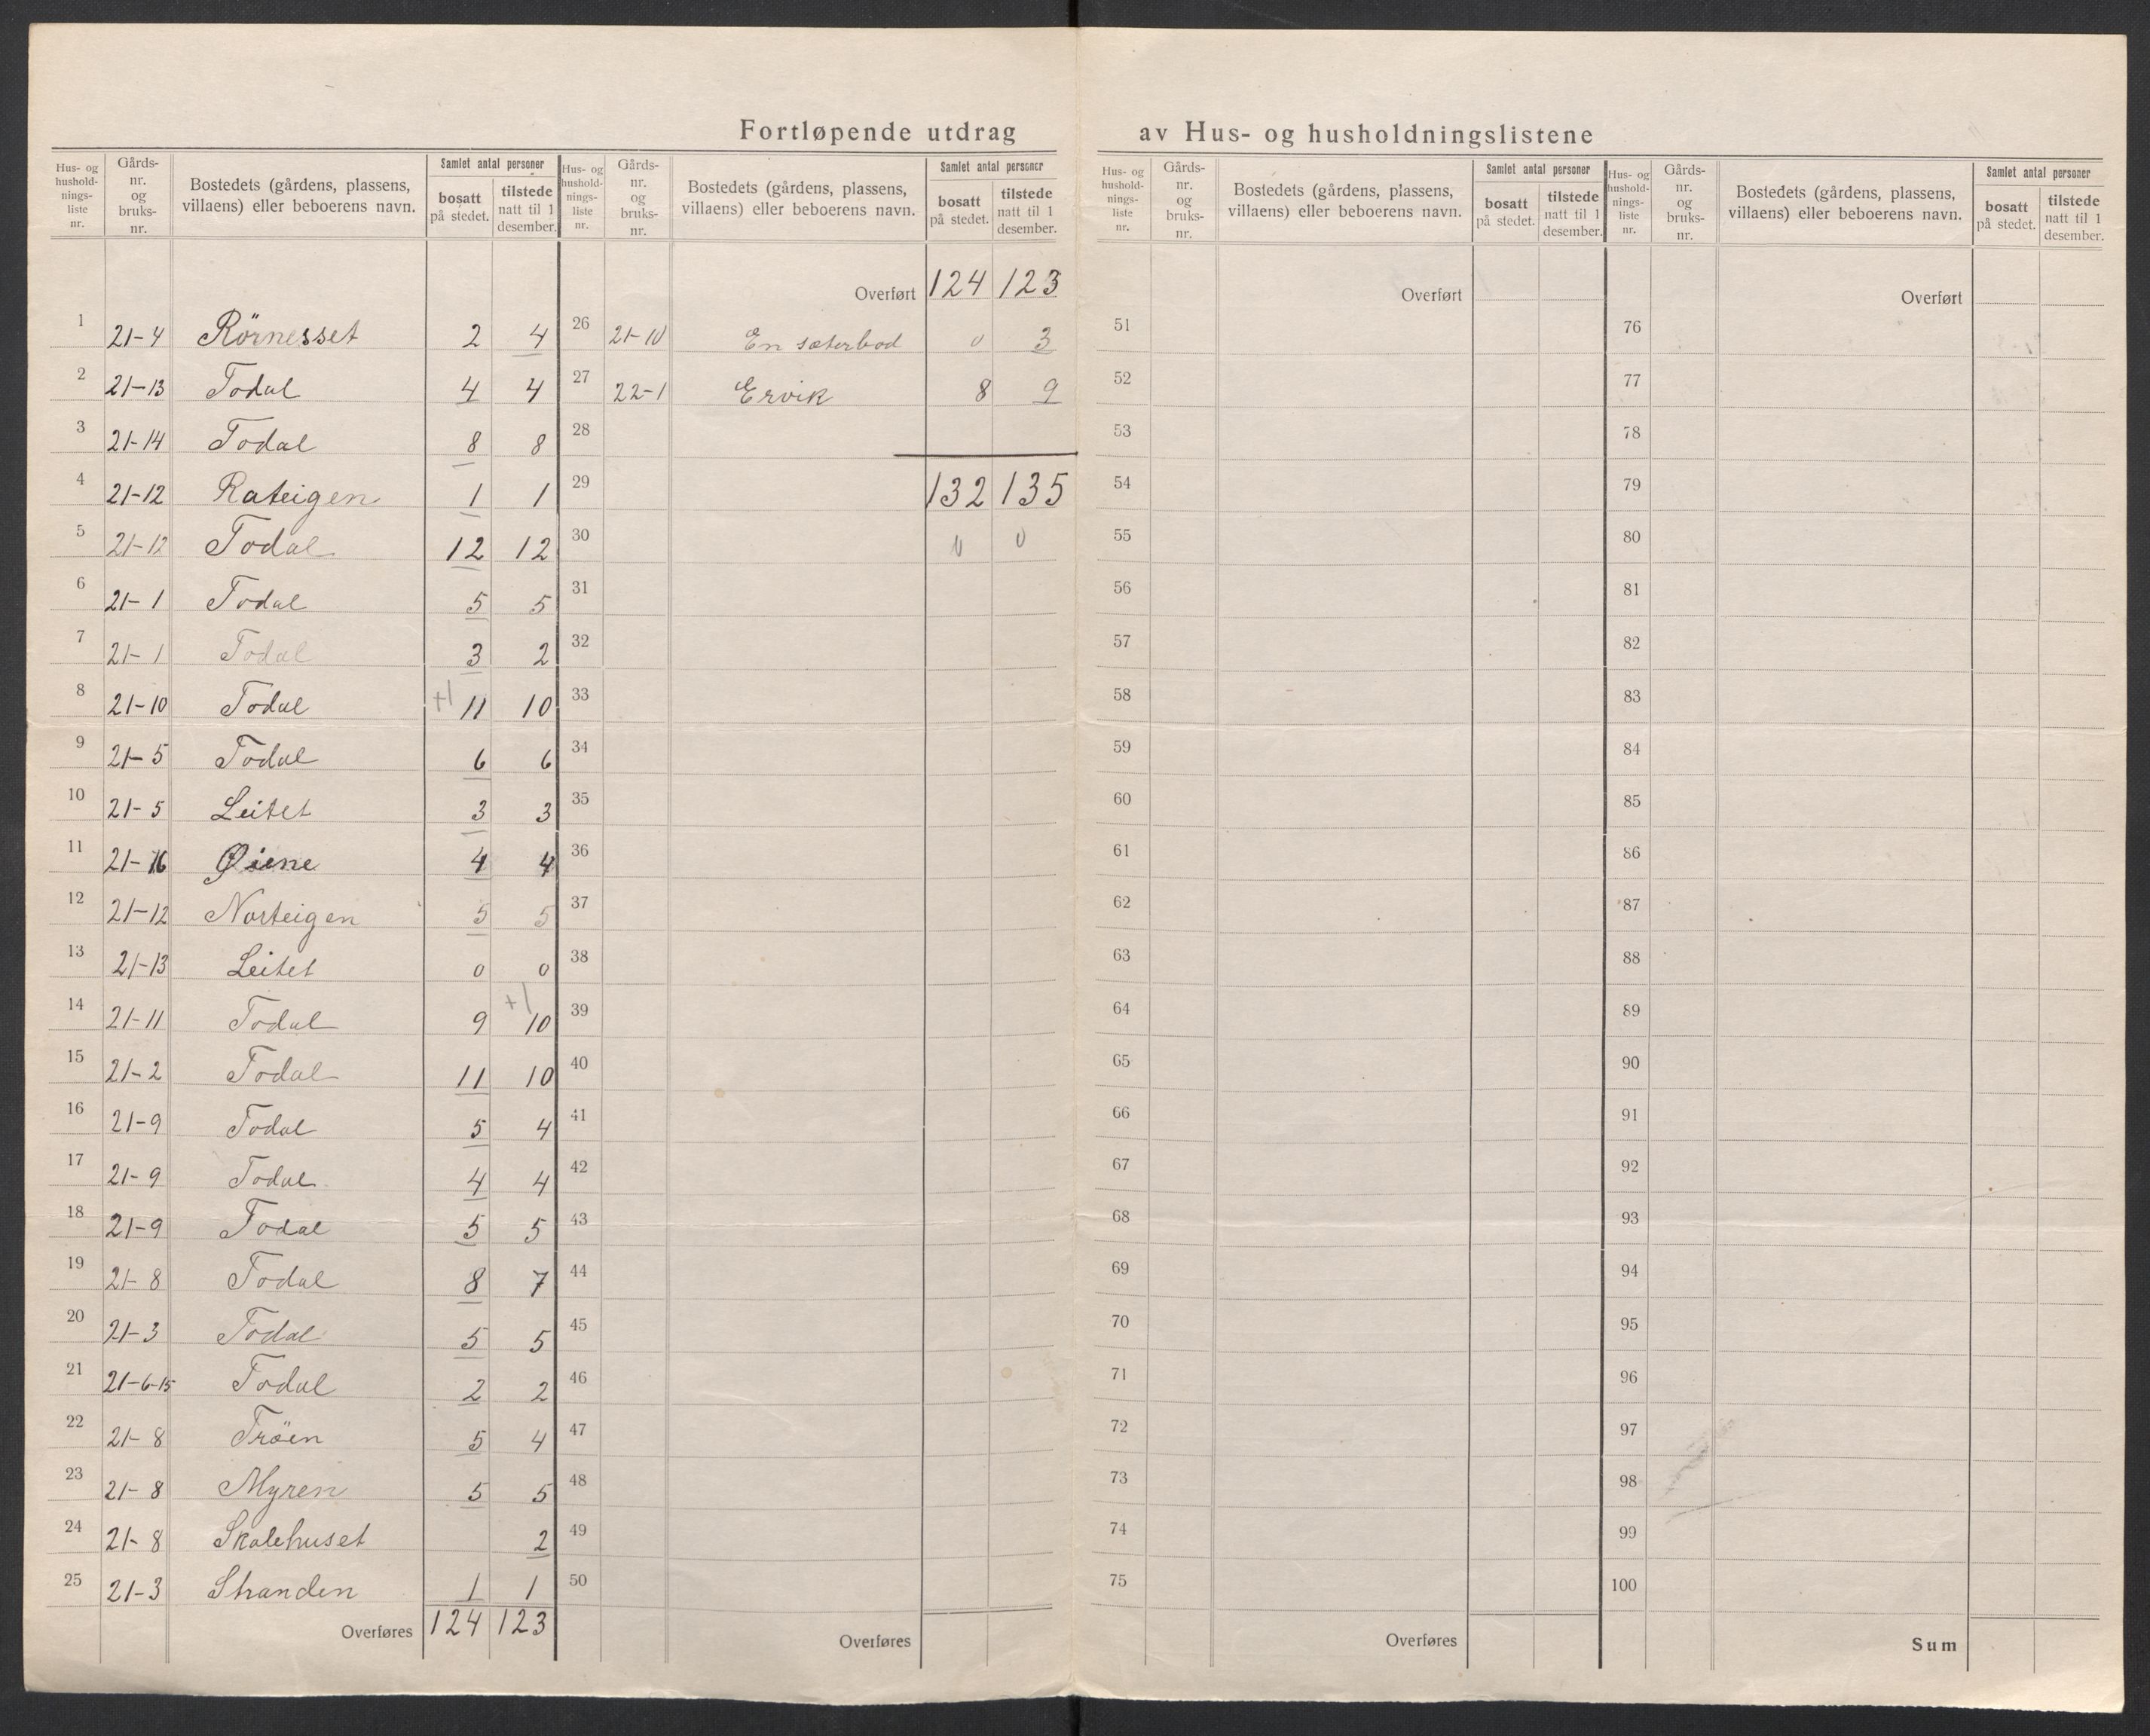 Fortløpende utdrag av Hus- og husholdningslistene
Hus- og husholdningsliste nr. Gårdsnr. og bruksnr. Bostedets (gårdens, plassens, villaens) eller beboerens navn. Samlet antal personer bosatt på stedet. tilstede natt til 1 desember.
1 21-4 Rörnesset 2 4
2 21-13 Todal 4 4
3 21-14 Todal 8 8
4 21-12 Rateigen 1 1
5 21-12 Todal 12 12
6 21-1 Todal 5 5
7 21-1 Todal 3 2
8 21-10 Todal +1 11 10
9 21-5 Todal 6 6
10 21-5 Leitet 3 3
11 21-16 Øiene 4 4
12 21-12 Norteigen 5 5
13 21-13 Leitet 0 0
14 21-11 Todal 9 +1 10
15 21-2 Todal 11 10
16 21-9 Todal 5 4
17 21-9 Todal 4 4
18 21-9 Todal 5 5
19 21-8 Todal 8 7
20 21-3 Todal 5 5
21 21-6-15 Todal 2 2
22 21-8 Tröen 5 4
23 21-8 Myren 5 5
24 21-8 Skolehuset 2
25 21-3 Stranden 1 1
Overføres 124 123
Hus- og husholdningsliste nr. Gårdsnr. og bruksnr. Bostedets (gårdens, plassens, villaens) eller beboerens navn. Samlet antal personer bosatt på stedet. tilstede natt til 1 desember.
Overført 124 123
26 21-10 En sæterbod 0 3
27 22-1 Ervik 8 9
28
29 132 135
30 0 0
31
32
33
34
35
36
37
38
39
40
41
42
43
44
45
46
47
48
49
50
Overføres
Hus- og husholdningsliste nr. Gårdsnr. og bruksnr. Bostedets (gårdens, plassens, villaens) eller beboerens navn. Samlet antal personer bosatt på stedet. tilstede natt til 1 desember.
Overført
51
52
53
54
55
56
57
58
59
60
61
62
63
64
65
66
67
68
69
70
71
72
73
74
75
Overføres
Hus- og husholdningsliste nr. Gårdsnr. og bruksnr. Bostedets (gårdens, plassens, villaens) eller beboerens navn. Samlet antal personer bosatt på stedet. tilstede natt til 1 desember.
Overført
76
77
78
79
80
81
82
83
84
85
86
87
88
89
90
91
92
93
94
95
96
97
98
99
100
Sum